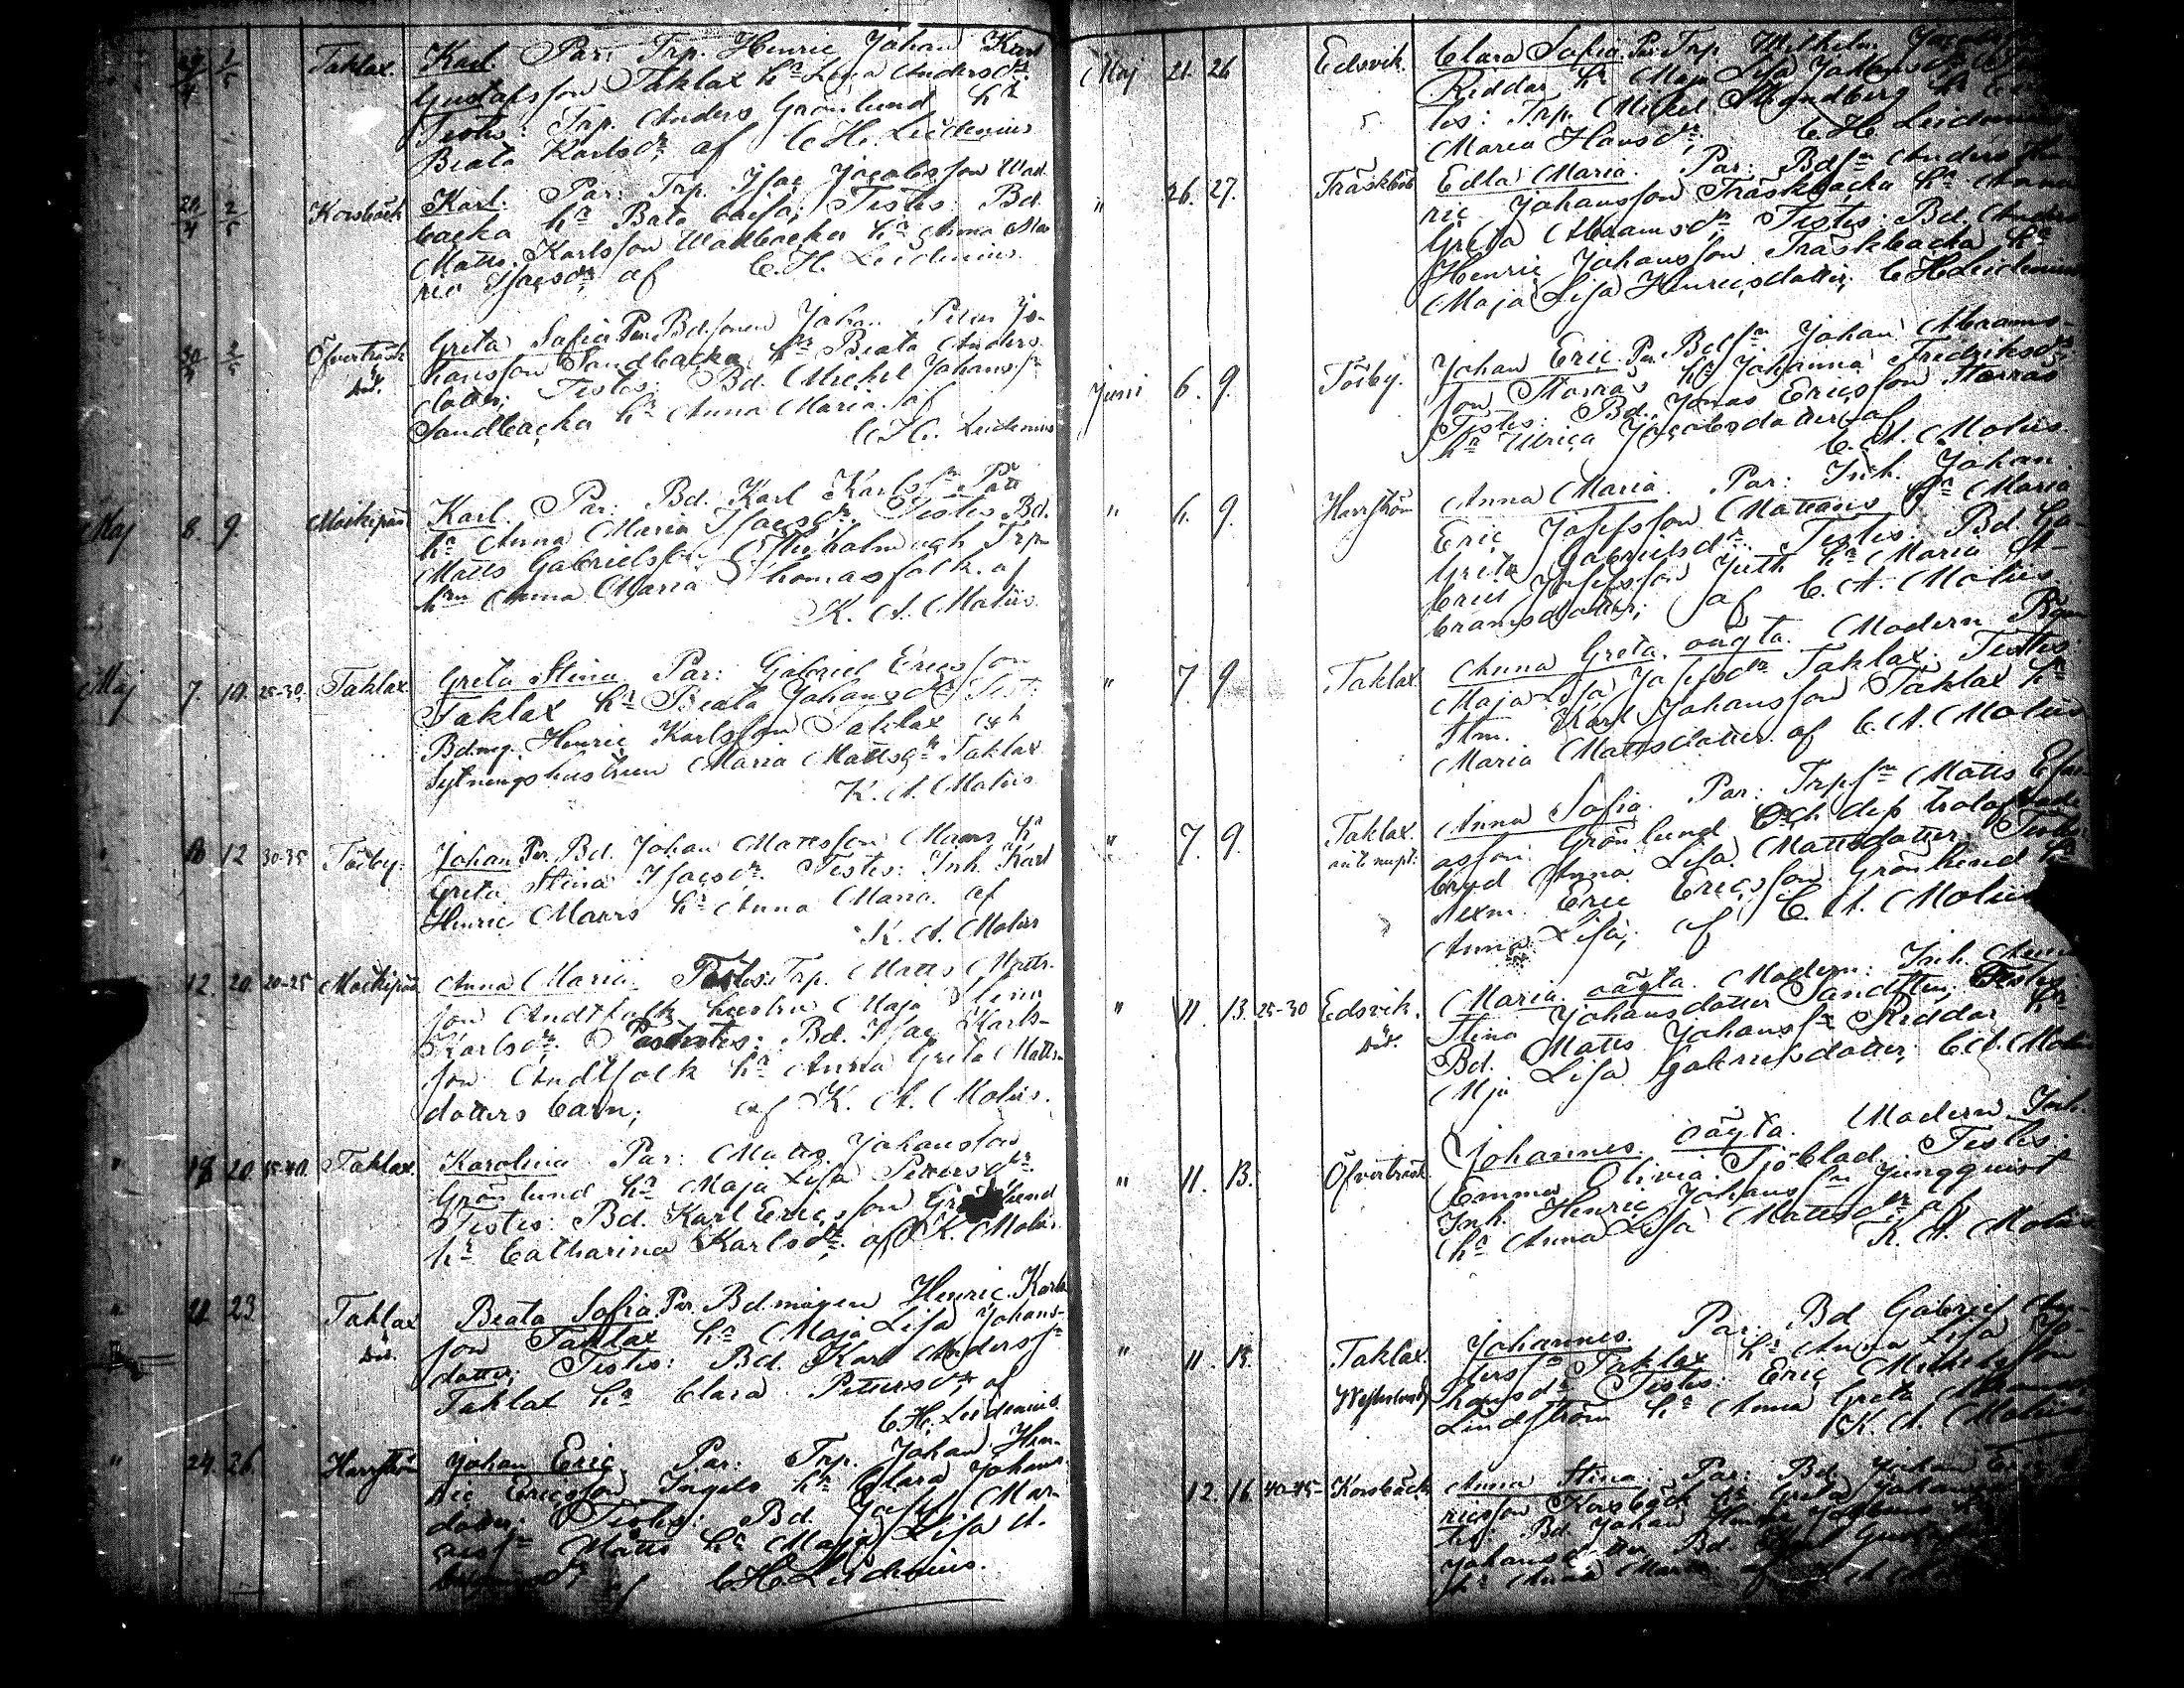 29/4 1/5 Taklax. Karl. Par: Trp. Henric Johan Karl
Gustafsson Taklax hr Lisa Andersdr.
Testes: Trp. Anders Grönlund hr
Beata Karlsdr, af C. H. Leidenius
2/5 Korsbäck Karl. Par: Trp. Isac Jacobsson Wad
backa hr Beata Testes: Bd.
Matts Karlsson Wadbacka hr Anna Ma
ria Isacsdr af C. H. Leidenius.
30/4 2/5 Öfverträsk Greta Sofia Par Bdsonen Johan Peter Jo-
död. hansson Sandbacka hr Beata Anders
dotter; Testes: Bd. Mickel Johanss
Sandbacka hr Anna Maria. af
C. H. Leidenius
Maj 8. 9. Moikipää Karl. Par: Bd. Karl Karlsn Pått
hr Anna Maria Isacsdr. Testes Bd.
Matts Gabrielsson Österholm och Trp
hrn Anna Maria Thomasfolk. af
K. A. Molüs.
Maj 7. 10. 25-30. Taklax. Greta Stina Par: Gabriel Ericsson
Taklax hr Beata Johansdr Test:
Bdmåg. Henric Karlsson Taklax och
Sytningshustrun Maria Mattsdr Taklax
K. A. Molüs
" 10 12 30-35 Töiby. Johan Par Bd. Johan Mattsson Maars hr
Greta Stina Isacsdr. Testes: Inh. Karl
Henric Maars hr Anna Maria. af
K. A. Molüs
12. 20. 20-25 Moikipää Anna Maria. Trp. Matts Matts-
son Andtfolk hustru Maja Stina
Karlsdr. Testes: Bd. Isac Karls-
son Andtfolk hr Anna Greta Matts
dotters barn; af K. A. Molüs.
" 18 20 35-40. Taklax. Karolina. Par: Matts Johansson
Grönlund hr Maja Lisa Petersdr.
Testes: Bd. Karl Ericsson Grönlund
hr Catharina Karlsdr. af K. Molüs.
" 21 23 Taklax Beata Sofia. Par. Bdmågen Henric Karls
död. son Taklax hr Maja Lisa Johans-
dotter; Testes: Bd. Karl Anderssn
Taklax hr Clara Pettersdr, af
C. H. Leidenius
" 24. 26. Harrström Johan Eric. Par: Trp. Johan Hen-
ric Ericsson Ingels hr Clara Johans
dotter; Testes: Bd. Josef Mar-
Matts hr Maja Lisa A-
af C H Leidenius.
Maj 21. 26 Edsvik. Clara Sofia. Par Trp. Wilhelm
Riddar, hr Maja Lisa Johansdr Tes
tes: Trp. Mickel Strandberg hr
Maria Hansdr, C. H. Leidenius
" 26. 27. Träskböle Edla Maria. Par: Bdsn Anders Hen
ric Johansson Träskbacka hr Anna
Greta Abramsdr, Testes: Bd. Anders
Henric Johansson Träskbacka hr
Maja Lisa Henricsdotter, C H Leidenius
Juni 6. 9. Töiby. Johan Eric. Par. Bdsn Johan Abrams-
son Storrås hr Johanna Fredriksdr
Testes: Bd. Jonas Ericsson Storrås
hr Ulrica Jacobsdotter af
C. A. Molüs.
" 6. 9. Harrström Anna Maria. Par: Inh. Johan
Eric Josefsson Mattans hr Maria
Greta Gabrielsdr. Testes. Bd. Ga-
briel Josefsson Juth hr Maria A-
bramsdotter; af C. A. Molüs.
" 7. 9 Taklax. Anna Greta. oägta. Modern Pig.
Maja Lisa Josefsdr Taklax. Testes
Karl Johansson Taklax hr
Maria Mattsdotter. af C. A. Molüs
" 7. 9. Taklax. Anna Sofia. Par: Trpsn Matts
ante nupt. asson Grönlund och dess trolofvade
bryd Anna Lisa Mattsdotter. Testes
Eric Ericsson Grönlund hr
Anna Lisa; af C. A. Molüs
" 11. 13. 25-30 Edsvik. Maria. oägta. Modern: Inh. Anna
död. Stina Johansdotter Sandsten, Testes:
Bd. Matts Johanssn Riddar hr
Maja Lisa Gabrielsdotter, C. A. Molüs
" 11. 13. Öfverträsk. Johannes. oägta. Modern Inh.
Emma Olivia Sjöblad. Testes:
Inh. Henric Johanssn Jungquist
hr Anna Lisa Mattsdr, af
K. A. Molüs
" 11. 13. Taklax. Johannes. Par. Bd Gabriel An-
derssn Taklax hr Anna Lisa Jo-
hansdr Testes: Eric Mickelsson
Lindström hr Anna Greta
K. A. Molüs
12. 16. 40-45 Korsbäck Anna Stina: Par: Bd. Johan
ricsson Korsbäck hr Greta Johans
tes: Bd. Johan Henric
Johansdotter Bd. Karl Gustaf
hr Anna Maria af